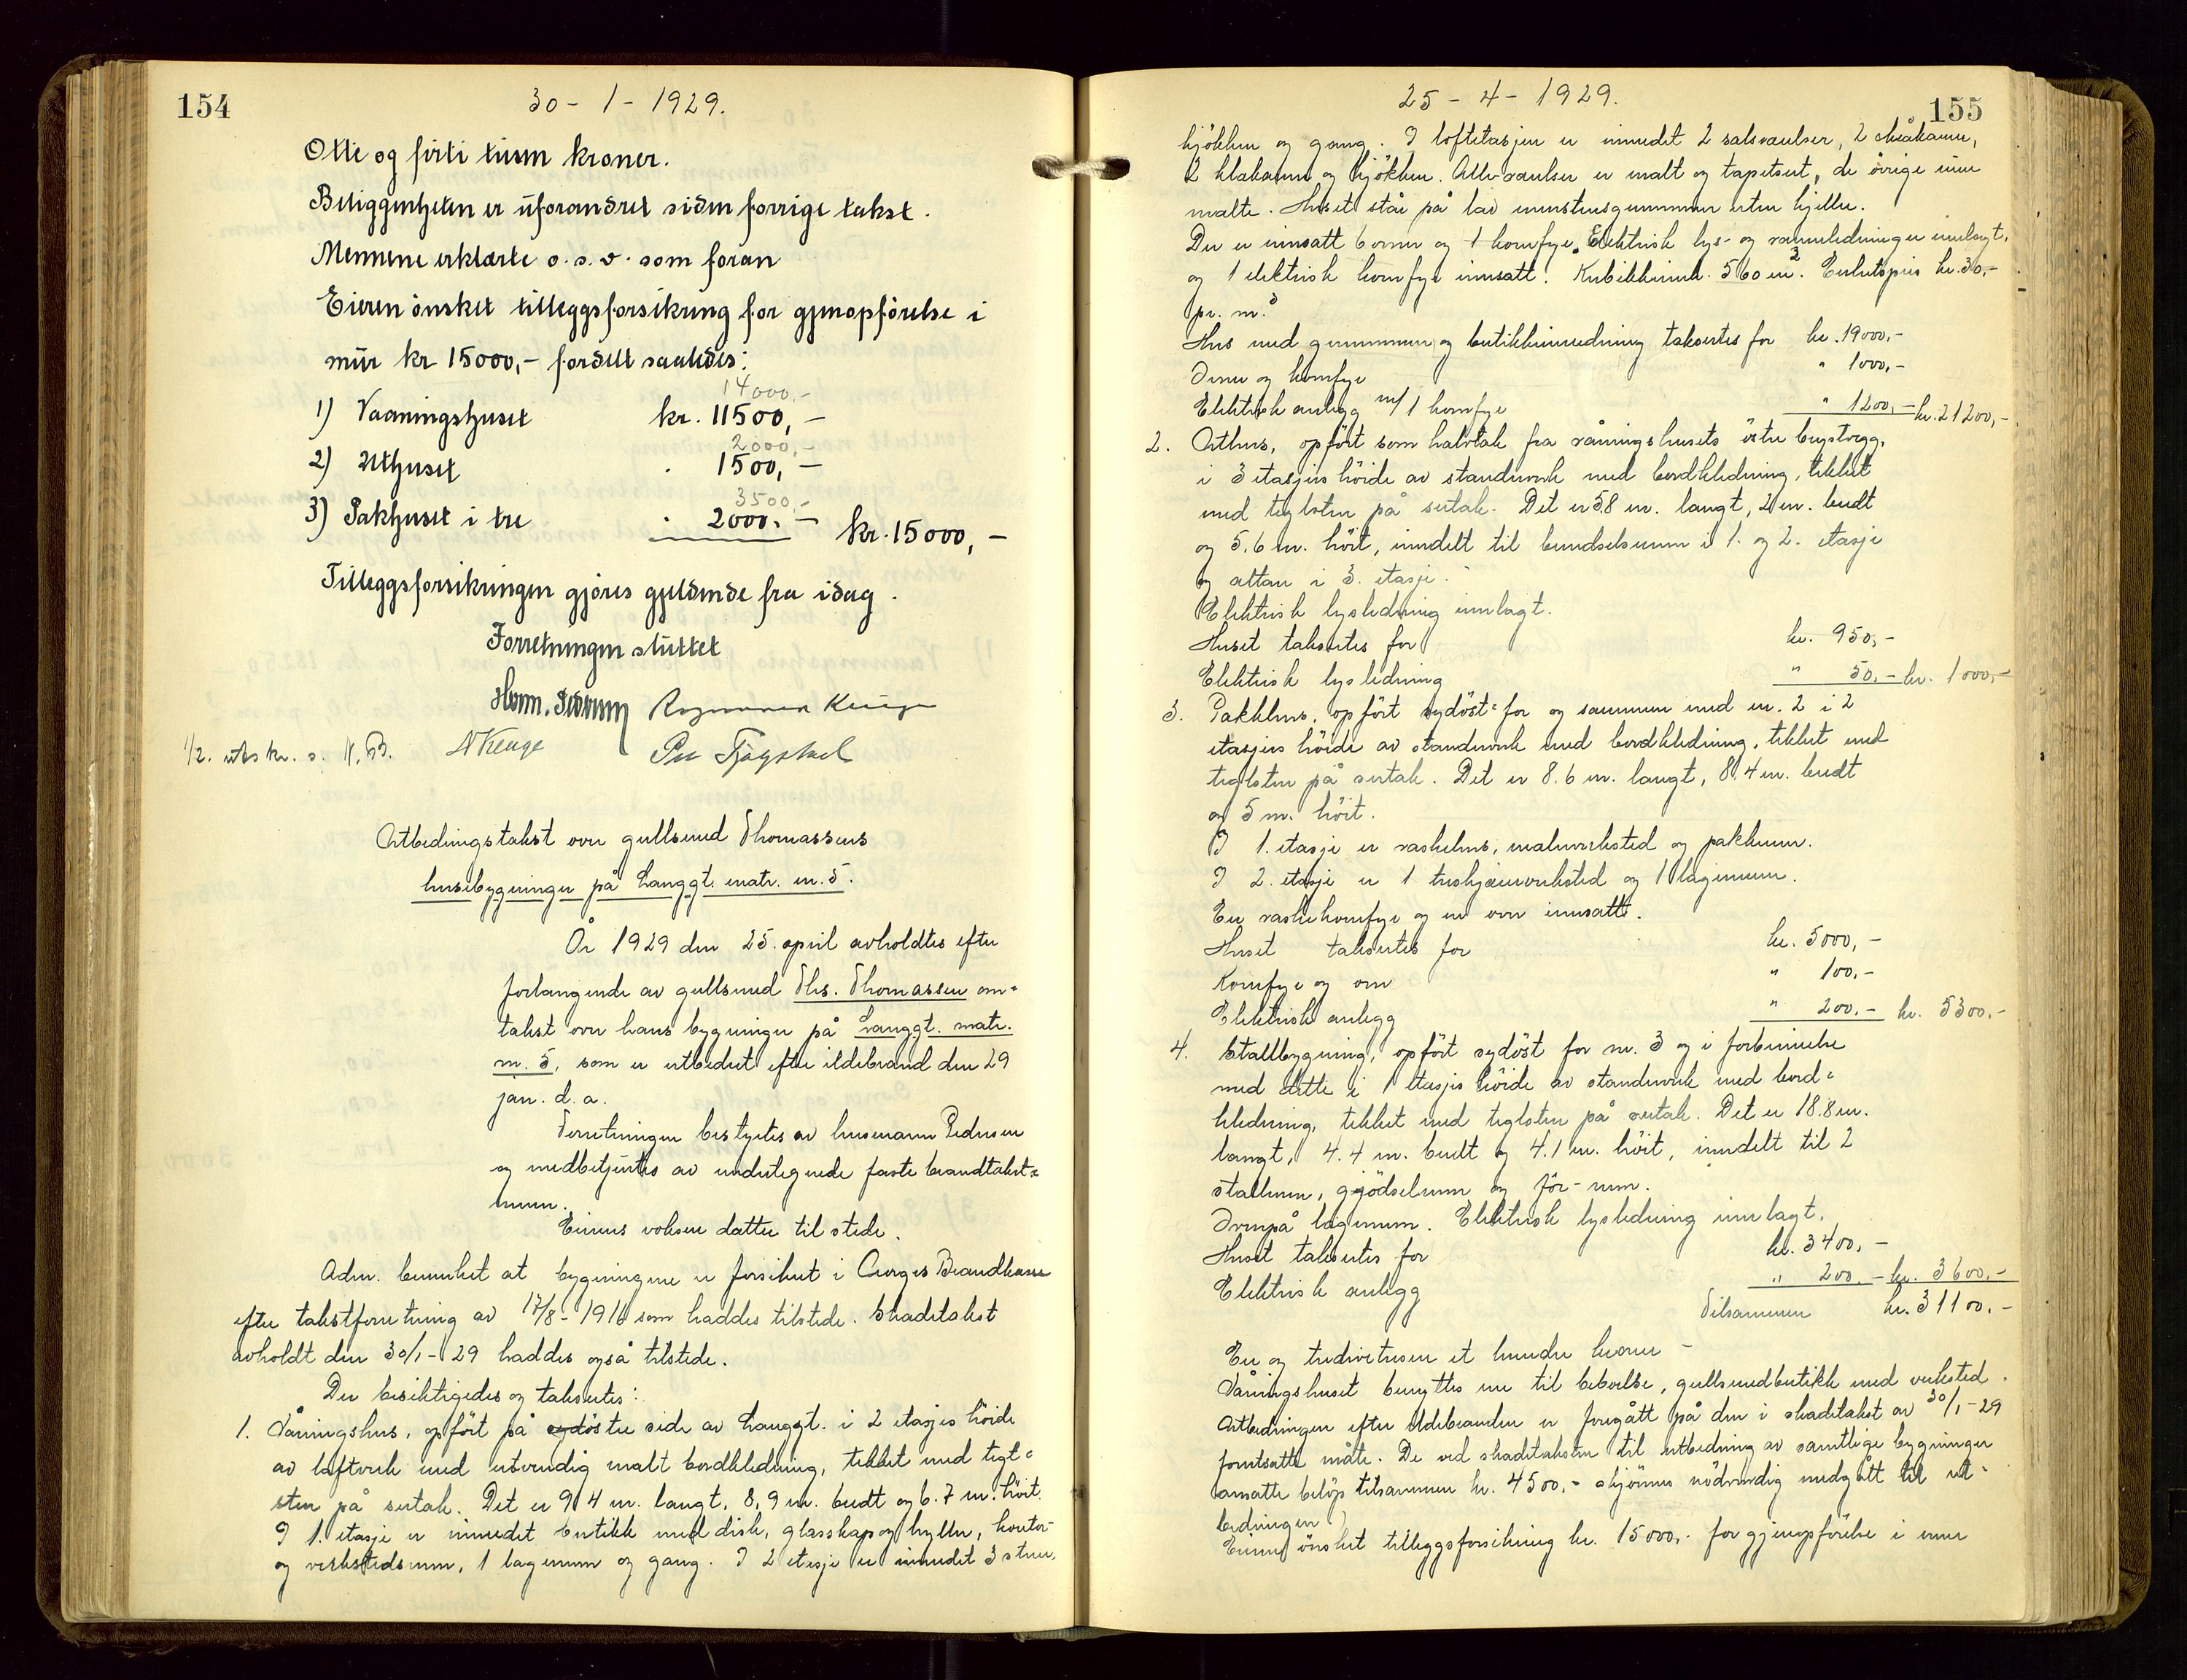 154
30 - 1 - 1929.
Otte og førti tusen kroner.
Beliggenheten er uforandret siden forrige takst.
Mennene erklærte o. s. v. som foran
Eieren ønsket tilleggsforsikring for gjenopførelse i
mur kr 15000,- fordelt saaledes:
14000,-
1) Vaaningshuset kr. 11500,-
2000,-
2) Uthuset " 1500,-
3500,-
3) Pakhuset i tre " 2000,- kr. 15000,-
Tilleggsforsikringen gjøres gjeldende fra idag.
Forretningen sluttet
Herm. Pedersen
1/2. utskr. s. N. B.
Utbedringstakst over gullsmed Thomassens
husebygninger på Langgt. matr. nr. 5.
År 1929 den 25. april avholdtes efter
forlangende av gullsmed Ths. Thomassen om=
takst over hans bygninger på Langgt. matr.
nr. 5, som er utbedret efter ildebrand den 29
jan. d. a.
Forretningen bestyrtes av lensmann Pedersen
og medbetjentes av undertegnede faste brandtakst=
menn.
Eierens voksen datter til stede.
Adm. bemerket at bygningene er forsikret i Norges Brandkasse
efter takstforretning av 17/8-1916 som haddes tilstede. Skadetakst
avholdt den 30/1-29 haddes også tilstede.
Der besiktigedes og takseertes:
1. Våningshus, opført på sydøstre side av Langgt. i 2 etasjes høide
av laftverk med utvendig malt bordkledning, tekket med tegl=
sten på sutak. Det er 9.4 m. langt, 8,9 m. bredt og 6.7 m. høit.
I 1. etasje er innredet butikk med disk, glasskap og hyller, kontor-
og verkstedsrum, 1 lagerrum og gang. I 2 etasje er innredet 3 stuer,
155
25 - 4 - 1929.
kjøkken og gang. I loftetasjen er innredet 2 salsværelser, 2 skråkamre,
2 klækamre og kjøkken. Alle værelser er malt og tapetsert, de øvrige rum
malte. Huset står på lav murstensgrunnmur uten kjeller.
Der er innsatt 6 ovner og 1 komfyr. Elektrisk lys- og varmeledninger innlagt,
og 1 elektrisk komfyr innsatt. Kubikkinnh. 560 m³. Enhetspris kr. 30,-
pr. m.³
Hus med grunnmur og butikkinnredning takseertes for kr. 19000,-
Ovner og komfyr " 1000,-
Elektrisk anlegg m/ 1 komfyr " 1200,- kr. 21200,-
2. Uthus, opført som halvtak fra våningshusets østre brystvegg,
i 3 etasjers høide av standverk med bordkledning, tekket
med teglsten på sutak. Det er 5.8 m. langt, 2 m. bredt
og 5.6 m. høit, inndelt til brendselsrum i 1. og 2. etasje
og altan i 3. etasje.
Elektrisk lysledning innlagt.
Huset takseertes for kr. 950,-
Elektrisk lysledning " 50,- kr. 1000,-
3. Pakkhus, opført sydøst for og sammen med nr. 2 i 2
etasjers høide av standverk med bordkledning, tekket med
teglsten på sutak. Det er 8.6 m. langt, 8.4 m. bredt
og 5 m. høit.
I 1. etasje er vaskehus, malerverksted og pakkrum.
I 2. etasje er 1 treskjærerverksted og 1 lagerrum.
En vaskekomfyr og en ovn innsatt.
Huset takseertes for kr. 5000,-
Komfyr og ovn " 100,-
Elektrisk anlegg " 200,- kr. 5300,-
4. Stallbygning, opført sydøst for nr. 3 og i forbindelse
med dette i 1 etasjes høide av standverk med bord=
kledning, tekket med teglsten på sutak. Det er 18.8 m.
langt, 4.4 m. bredt og 4.1 m. høit, inndelt til 2
stallrum, gjødselrum og fôr-rum.
Ovenpå lagerrum. Elektrisk lysledning innlagt.
Huset takseertes for kr. 3400,-
Elektrisk anlegg " 200,- kr. 3600,-
Tilsammen kr. 31100,-
En og tredivetusen et hundre kroner -
Våningshuset benyttes nu til beboelse, gullsmedbutikk med verksted.
Utbedringen efter ildebranden er foregått på den i skadetakst av 30/1-29
forutsatte måte. De ved skadetaksten til utbedring av samtlige bygninger
ansatte beløp tilsammen kr. 4500,- skjønnes nødvendig medgått til ut=
bedringen.
Eieren ønsket tilleggsforsikring kr. 15000,- for gjenopførelse i mur